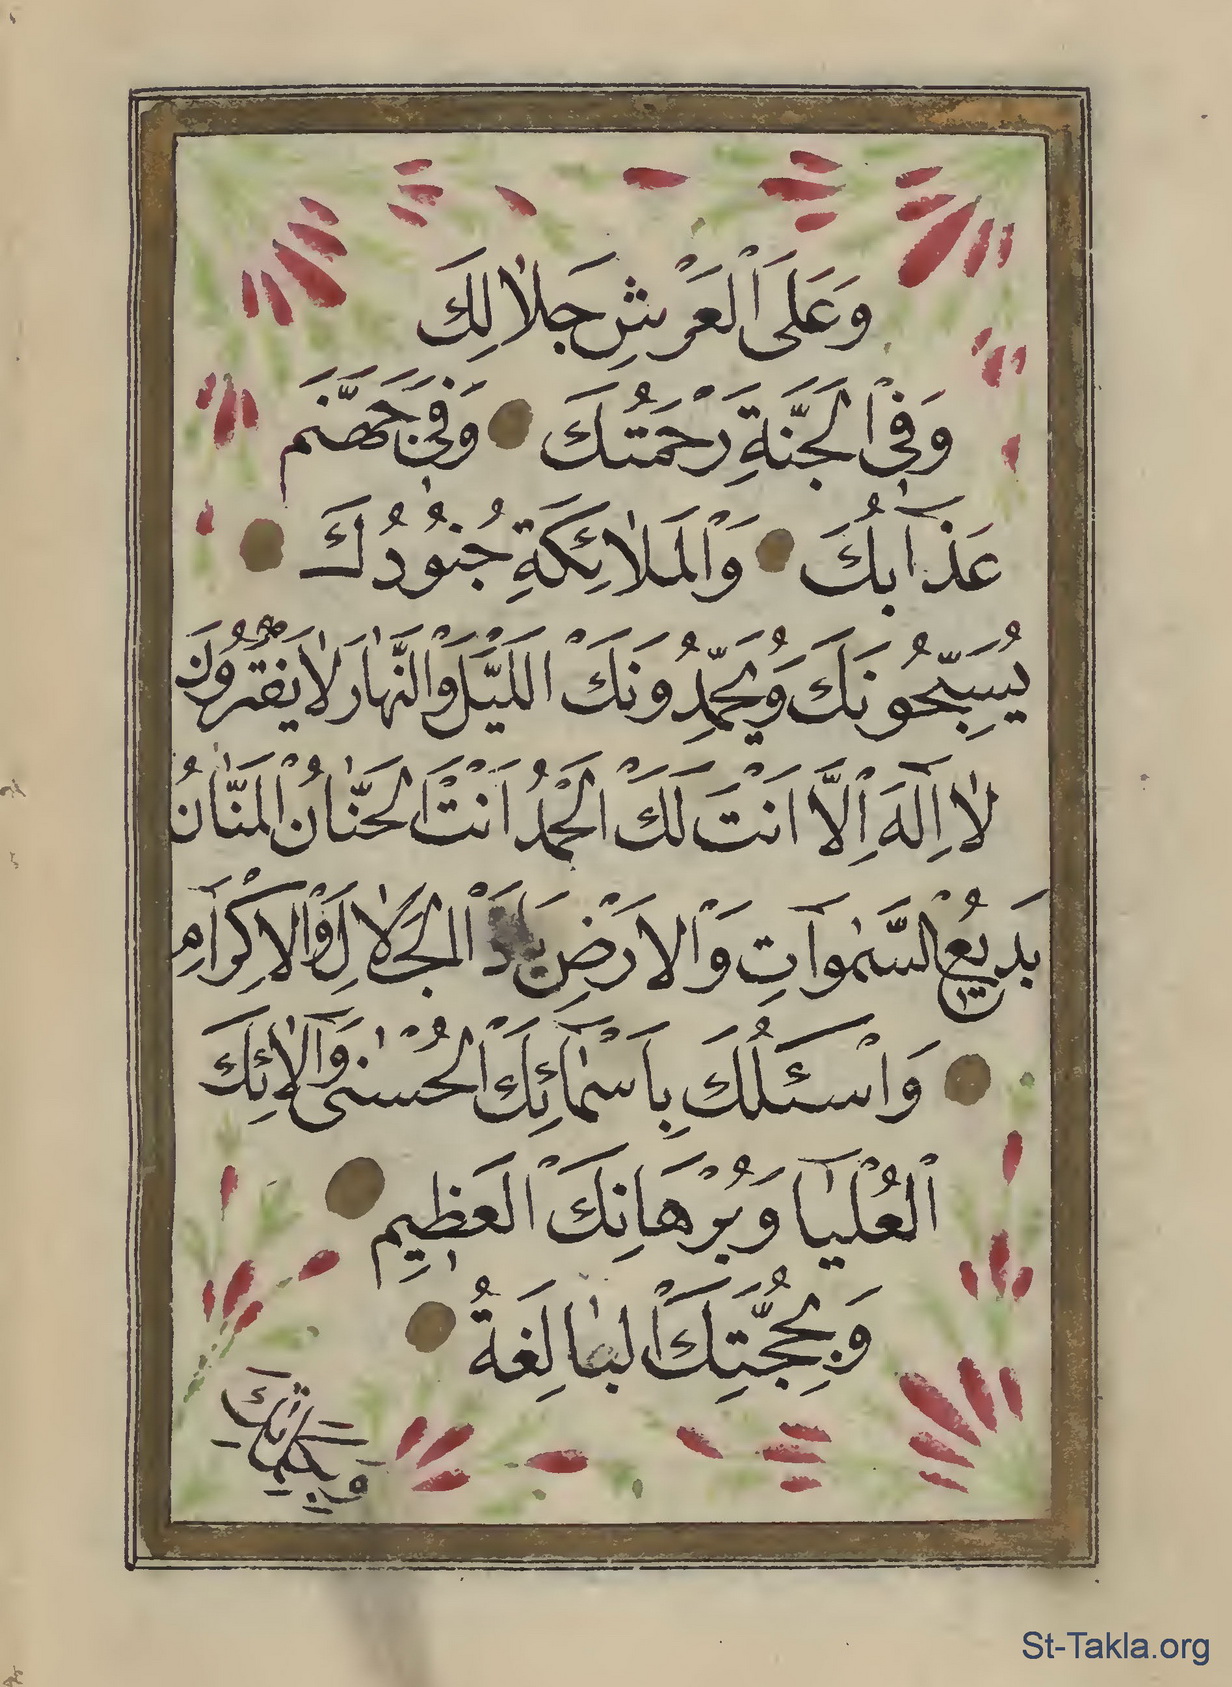 وَعَلَى الْعَرْشِ جَلَالِكَ
وَفِي الْجَنَّةِ رَحْمَتُكَ وَفِي جَهَنَّمَ
عَذَابُكَ وَالْمَلَائِكَةِ جُنُودُكَ
يُسَبِّحُونَكَ وَيُحَمِّدُونَكَ اللَّيْلَ وَالنَّهَارَ لَا يَفْتُرُونَ
لَا اِلَهَ اِلَّا اَنْتَ لَكَ الْحَمْدُ اَنْتَ الْحَنَّانُ الْمَنَّانُ
بَدِيعُ السَّمٰوَاتِ وَالْاَرْضِ يَا ذَا الْجَلَالِ وَالْاِكْرَامِ
وَاَسْئَلُكَ بِاَسْمَائِكَ الْحُسْنٰى وَآلَائِكَ
الْعُلْيَا وَبُرْهَانِكَ الْعَظِيمِ
وَبِحُجَّتِكَ الْبَالِغَةُ
St-Takla.org